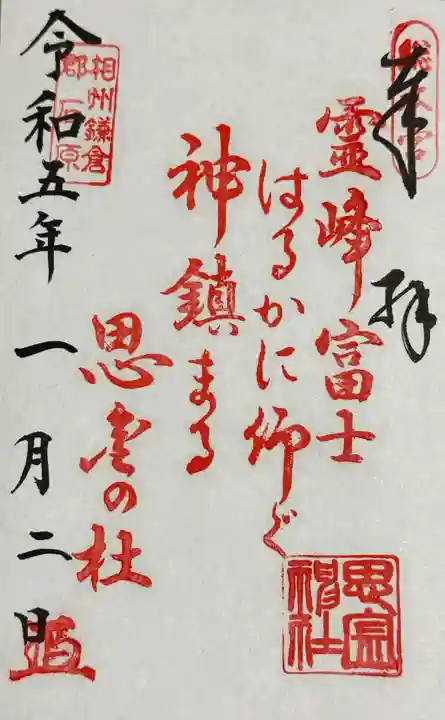 奉拝
霊峰富士
はるかに仰ぐ
神鎮まる
思金の杜
相州鎌倉
郡
原
令和五年一月二日
思金
神社